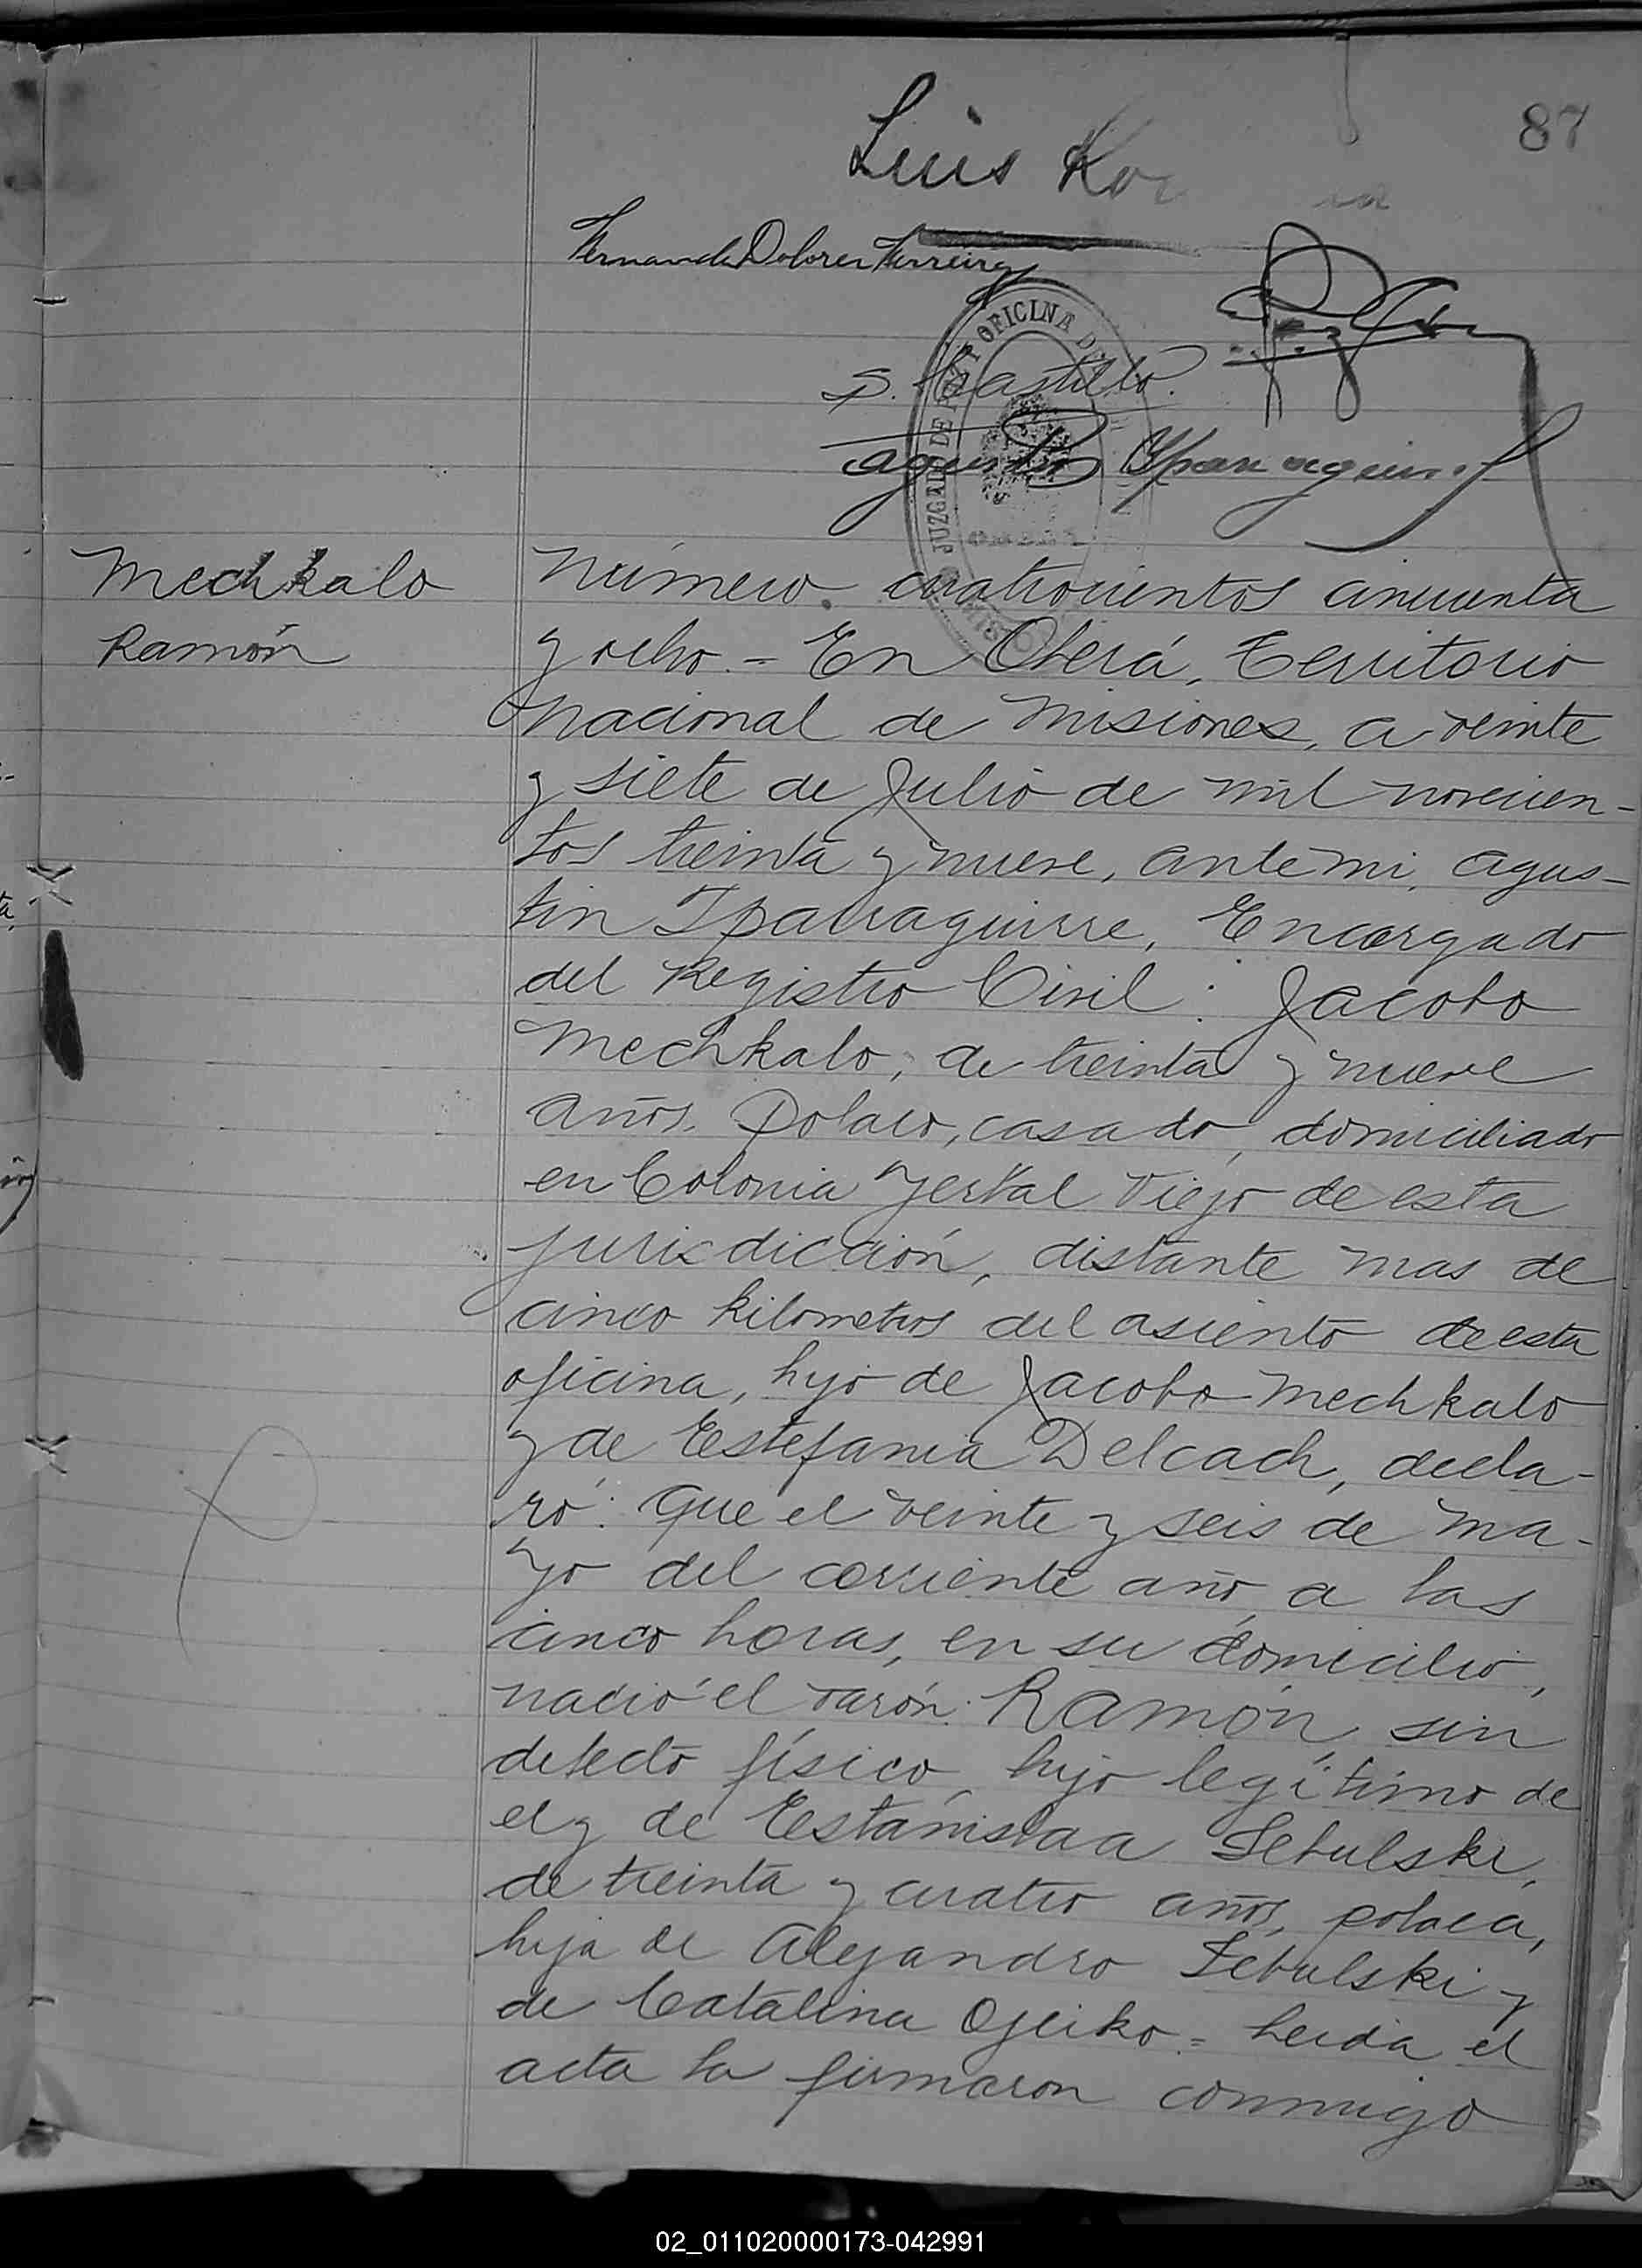 87
Luis Kor
Fernanda Dolores Ferreira
OFICINA DE
JUZGADO DE PAZ
S. Castillo.
Agustin Yparraguirre
Mechkalo
Ramón
Número cuatrocientos cincuenta
y ocho - En Oberá, Territorio
Nacional de Misiones, a veinte
y siete de Julio de mil novecien-
tos treinta y nueve, ante mi, Agus-
tin Iparraguirre, Encargado
del Registro Civil: Jacobo
Mechkalo, de treinta y nueve
años, Polaco, casado, domiciliado
en Colonia Yerbal Viejo de esta
jurisdicción, distante mas de
cinco kilometros del asiento de esta
oficina, hijo de Jacobo Mechkalo
y de Estefania Delcach, decla-
ró: Que el veinte y seis de Ma-
yo del corriente año, a las
cinco horas, en su domicilio,
nació el varón: Ramón, sin
defecto físico, hijo legítimo de
el y de Estanislaa Sebulski,
de treinta y cuatro años, polaca,
hija de Alejandro Sebulski y
de Catalina Ojeiko = Leida el
acta la firmaron conmigo
02_011020000173-042991